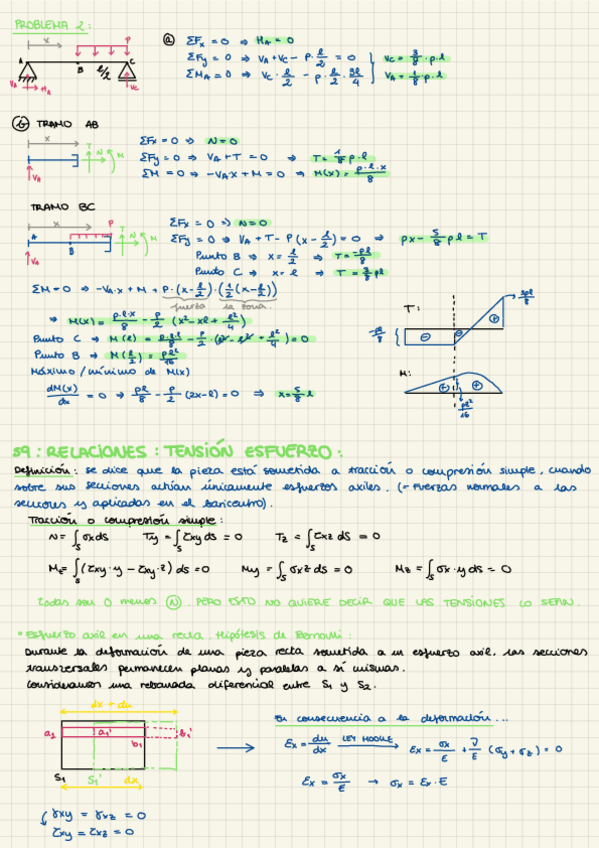 PROBLEMA 2:
x
P
A
B
l/2
C
V_A
H_A
V_C
ⓐ ΣFx = 0 ⇒ H_A = 0
ΣFy = 0 ⇒ V_A + V_C - p·l/2 = 0
V_C = 3/8·p·l
ΣM_A = 0 ⇒ V_C·l/2 - p·l/2·3l/4
V_A = 1/8·p·l
ⓑ TRAMO AB
x
T
N
M
V_A
ΣFx = 0 ⇒ N = 0
ΣFy = 0 ⇒ V_A + T = 0 ⇒ T = 1/8 p·l
ΣM = 0 ⇒ -V_A x + M = 0 ⇒ M(x) = p·l·x/8
TRAMO BC
x
P
A
B
T
N
M
V_A
ΣFx = 0 ⇒ N = 0
ΣFy = 0 ⇒ V_A + T - P(x - l/2) = 0 ⇒ px - 5/8 pl = T
Punto B ⇒ x = l/2 ⇒ T = -pl/8
Punto C ⇒ x = l ⇒ T = 3/8 pl
ΣM = 0 ⇒ -V_A·x + M + P·(x - l/2)·(1/2(x - l/2))
fuerza la zona.
⇒ M(x) = p·l·x/8 - p/2 (x² - xl + l²/4)
Punto C ⇒ M(l) = p·l·l/8 - p/2 (l² - l² + l²/4) = 0
Punto B ⇒ M(l/2) = pl²/16
Máximo/mínimo de M(x)
dM(x)/dx = 0 ⇒ pl/8 - p/2 (2x - l) = 0 ⇒ x = 5/8 l
T:
3pl/8
-pl/8
M:
pl²/16
S9: RELACIONES: TENSIÓN ESFUERZO:
Definición: se dice que la pieza está sometida a tracción o compresión simple, cuando
sobre sus secciones actúan únicamente esfuerzos axiles. (= Fuerzas normales a las
secciones y aplicadas en el baricentro).
Tracción o compresión simple:
N = ∫s σx ds Ty = ∫s τxy ds = 0 Tz = ∫s τxz ds = 0
Mx = ∫s (τxy·y - τxy·z) ds = 0 My = ∫s σxz ds = 0 Mz = ∫s σx·y ds = 0
todas son 0 menos Ⓝ. PERO ESTO NO QUIERE DECIR QUE LAS TENSIONES LO SEAN.
* Esfuerzo axil en una recta. Hipótesis de Bernoulli:
Durante la deformación de una pieza recta sometida a un esfuerzo axil, las secciones
transversales permanecen planas y paralelas a sí mismas.
Consideramos una rebanada diferencial entre S₁ y S₂.
dx + du
a₂
a₁'
b₁
b₁'
S₁
S₁'
dx
En consecuencia a la deformación...
εx = du/dx LEY HOOKE → εx = σx/E + ν/E (σy + σz) = 0
εx = σx/E → σx = εx·E
γxy = γxz = 0
τxy = τxz = 0